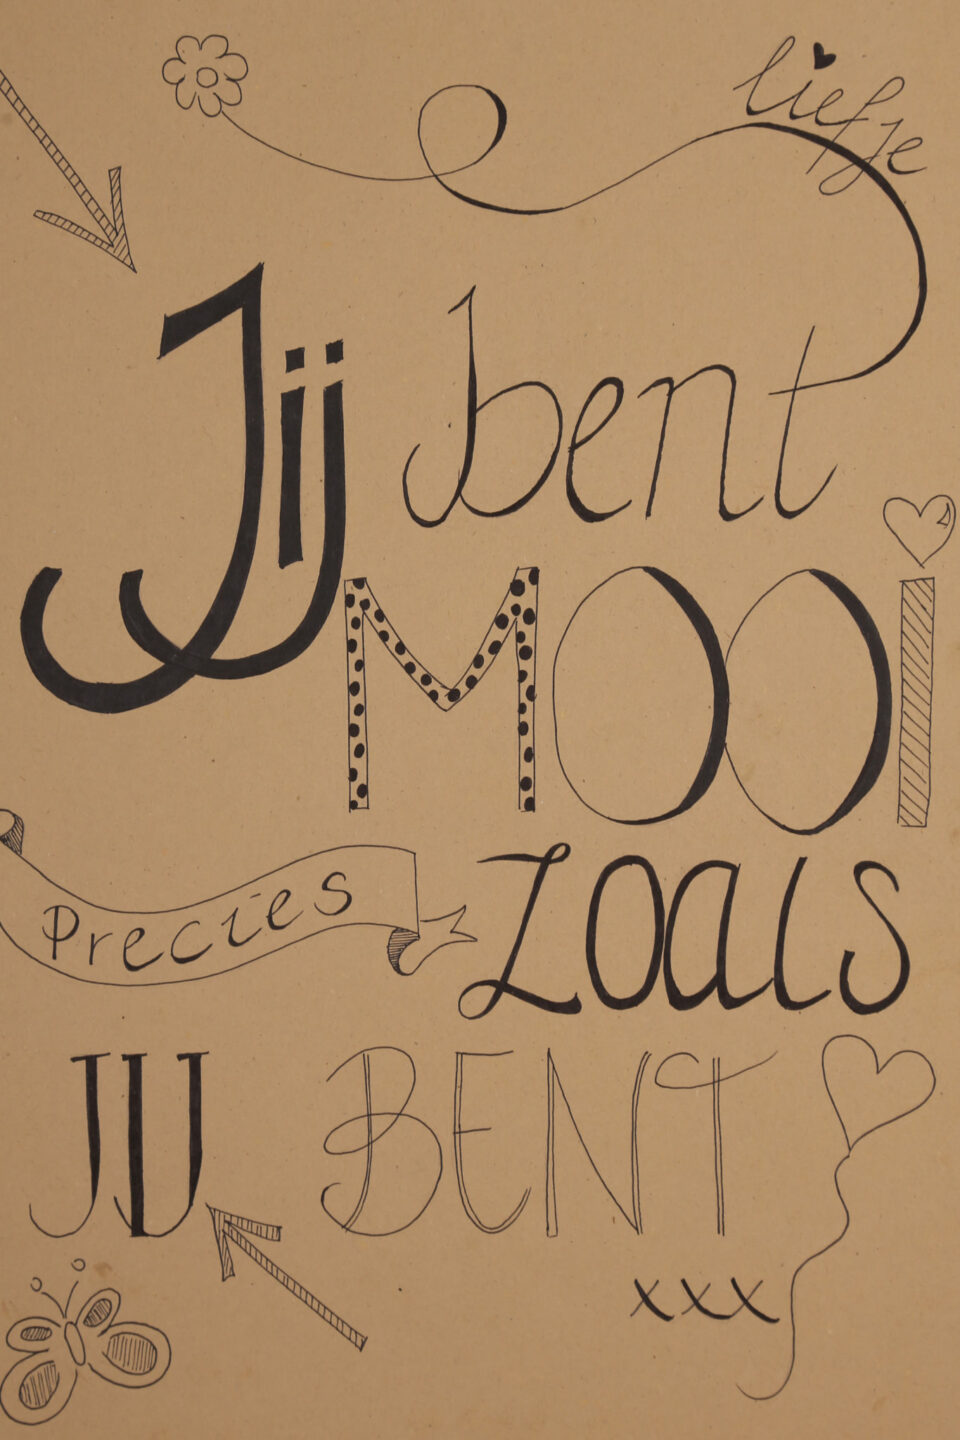 liefje
Jij bent
MOOi
Precies zoals
JIJ BENT
xxx